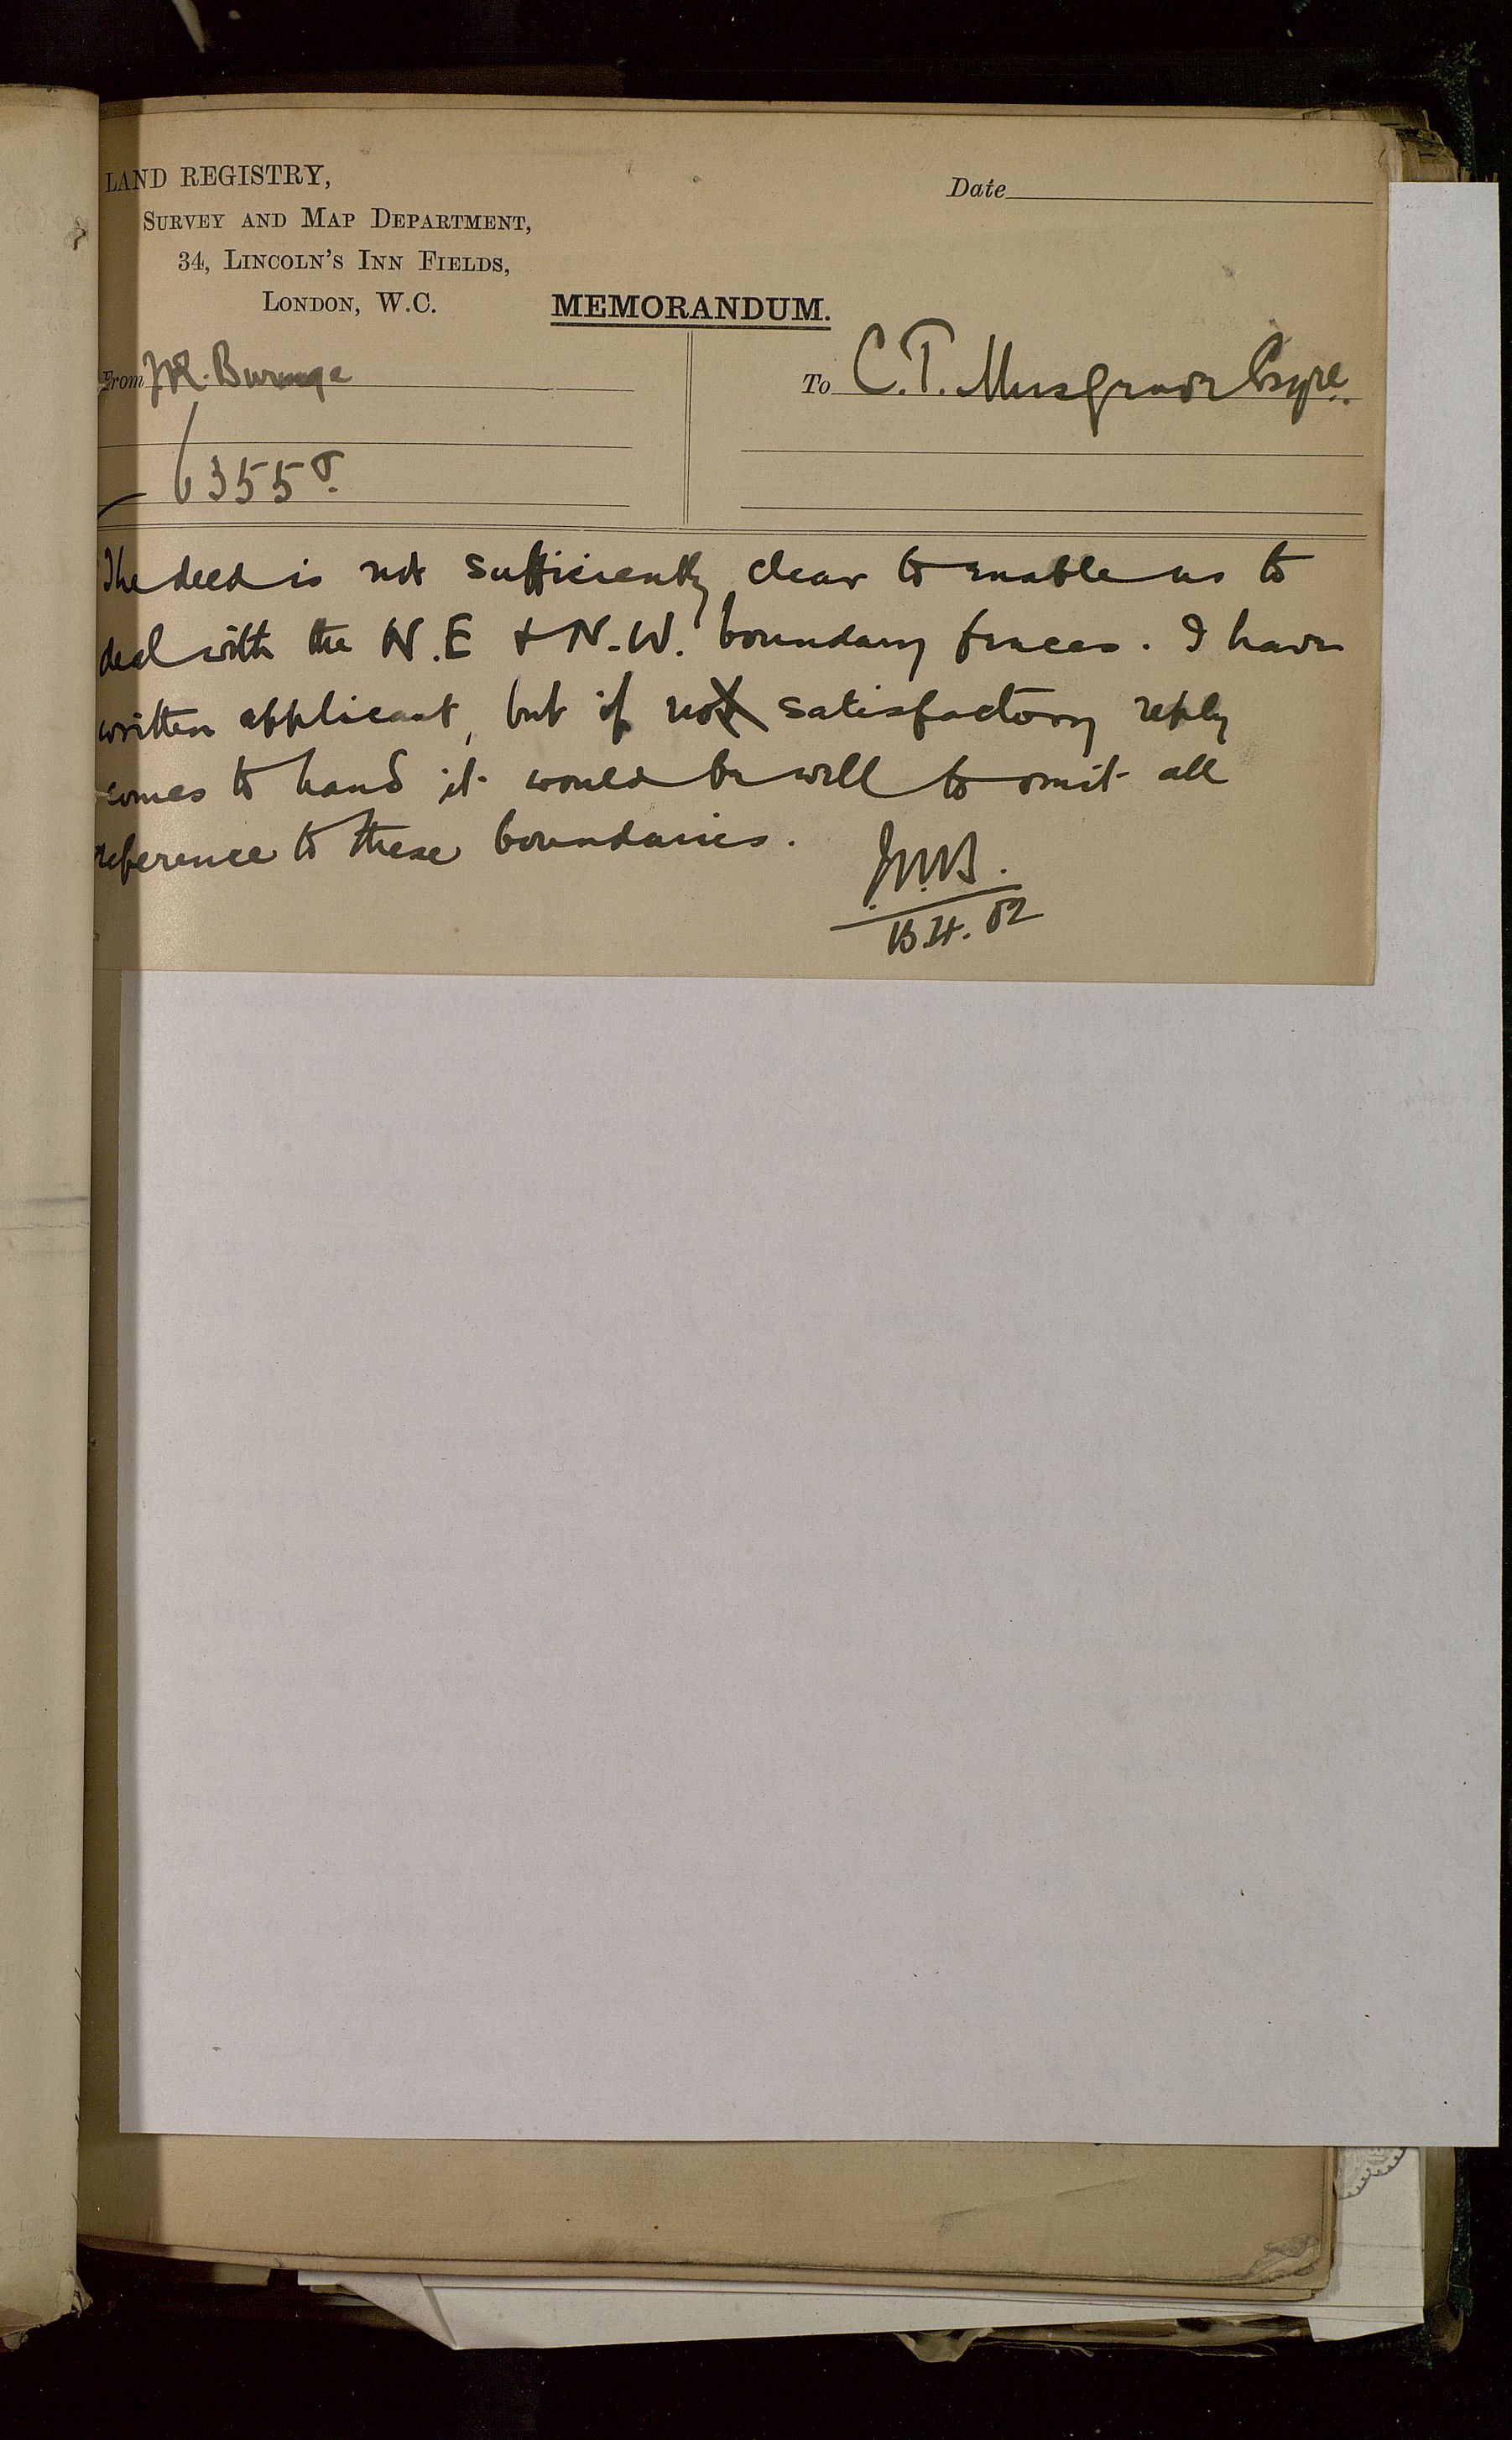 LAND REGISTRY,
SURVEY AND MAP DEPARTMENT,
34, LINCOLN'S INN FIELDS,
LONDON, W.C.
Date
MEMORANDUM.
From
To C.T. Musgrave Esqre.
6355
The deed is not sufficiently clear to enable us to
deal with the N.E & N.W. boundary fences. I have
written applicant, but if no satisfactory reply
comes to hand it would be well to omit all
reference to these boundaries.